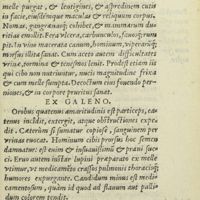 melle purgat, & lentigines, & aspredinem cutis
in facie, emendatque maculas & reliquum corpus.
Nomas, gangrænasq; cohibet, & m
ritias emollit. Fera vlcera, carbunculos, fauosq; rum
pit. In vino decoctum, nomas emollit, viperarūq;
morsus illitu sanat. Cum aceto autem difficultates
vrinæ, tormina & tenesmos lenit. Prodest etiam iis
qui cibo non nutriuntur, nucis magnitudine frixa
& cum melle sumpta. Decoctum eius foeminis pur-
gantes, & in corpore pruritus sanat.
EX GALENO.
Orobus quatenus amaritudinis est particeps, ea-
tenus incîdit, extergit, atque obstructiones expe-
dit. Cæterùm si sumatur copiosè, sanguinem per
vrinas educit. Hominum cibis prorsus hoc semen
damnatur: est enim & insuauissimū & praui suc-
ci. Eruo autem instar lupini præparato ex melle
vtimur, vt medicamēto crassos pulmonū thoracisq;
humores expurgante. Candidum minus est medi-
camentosum, quàm id quod ad flauum aut palli-
dum colorem tendit.